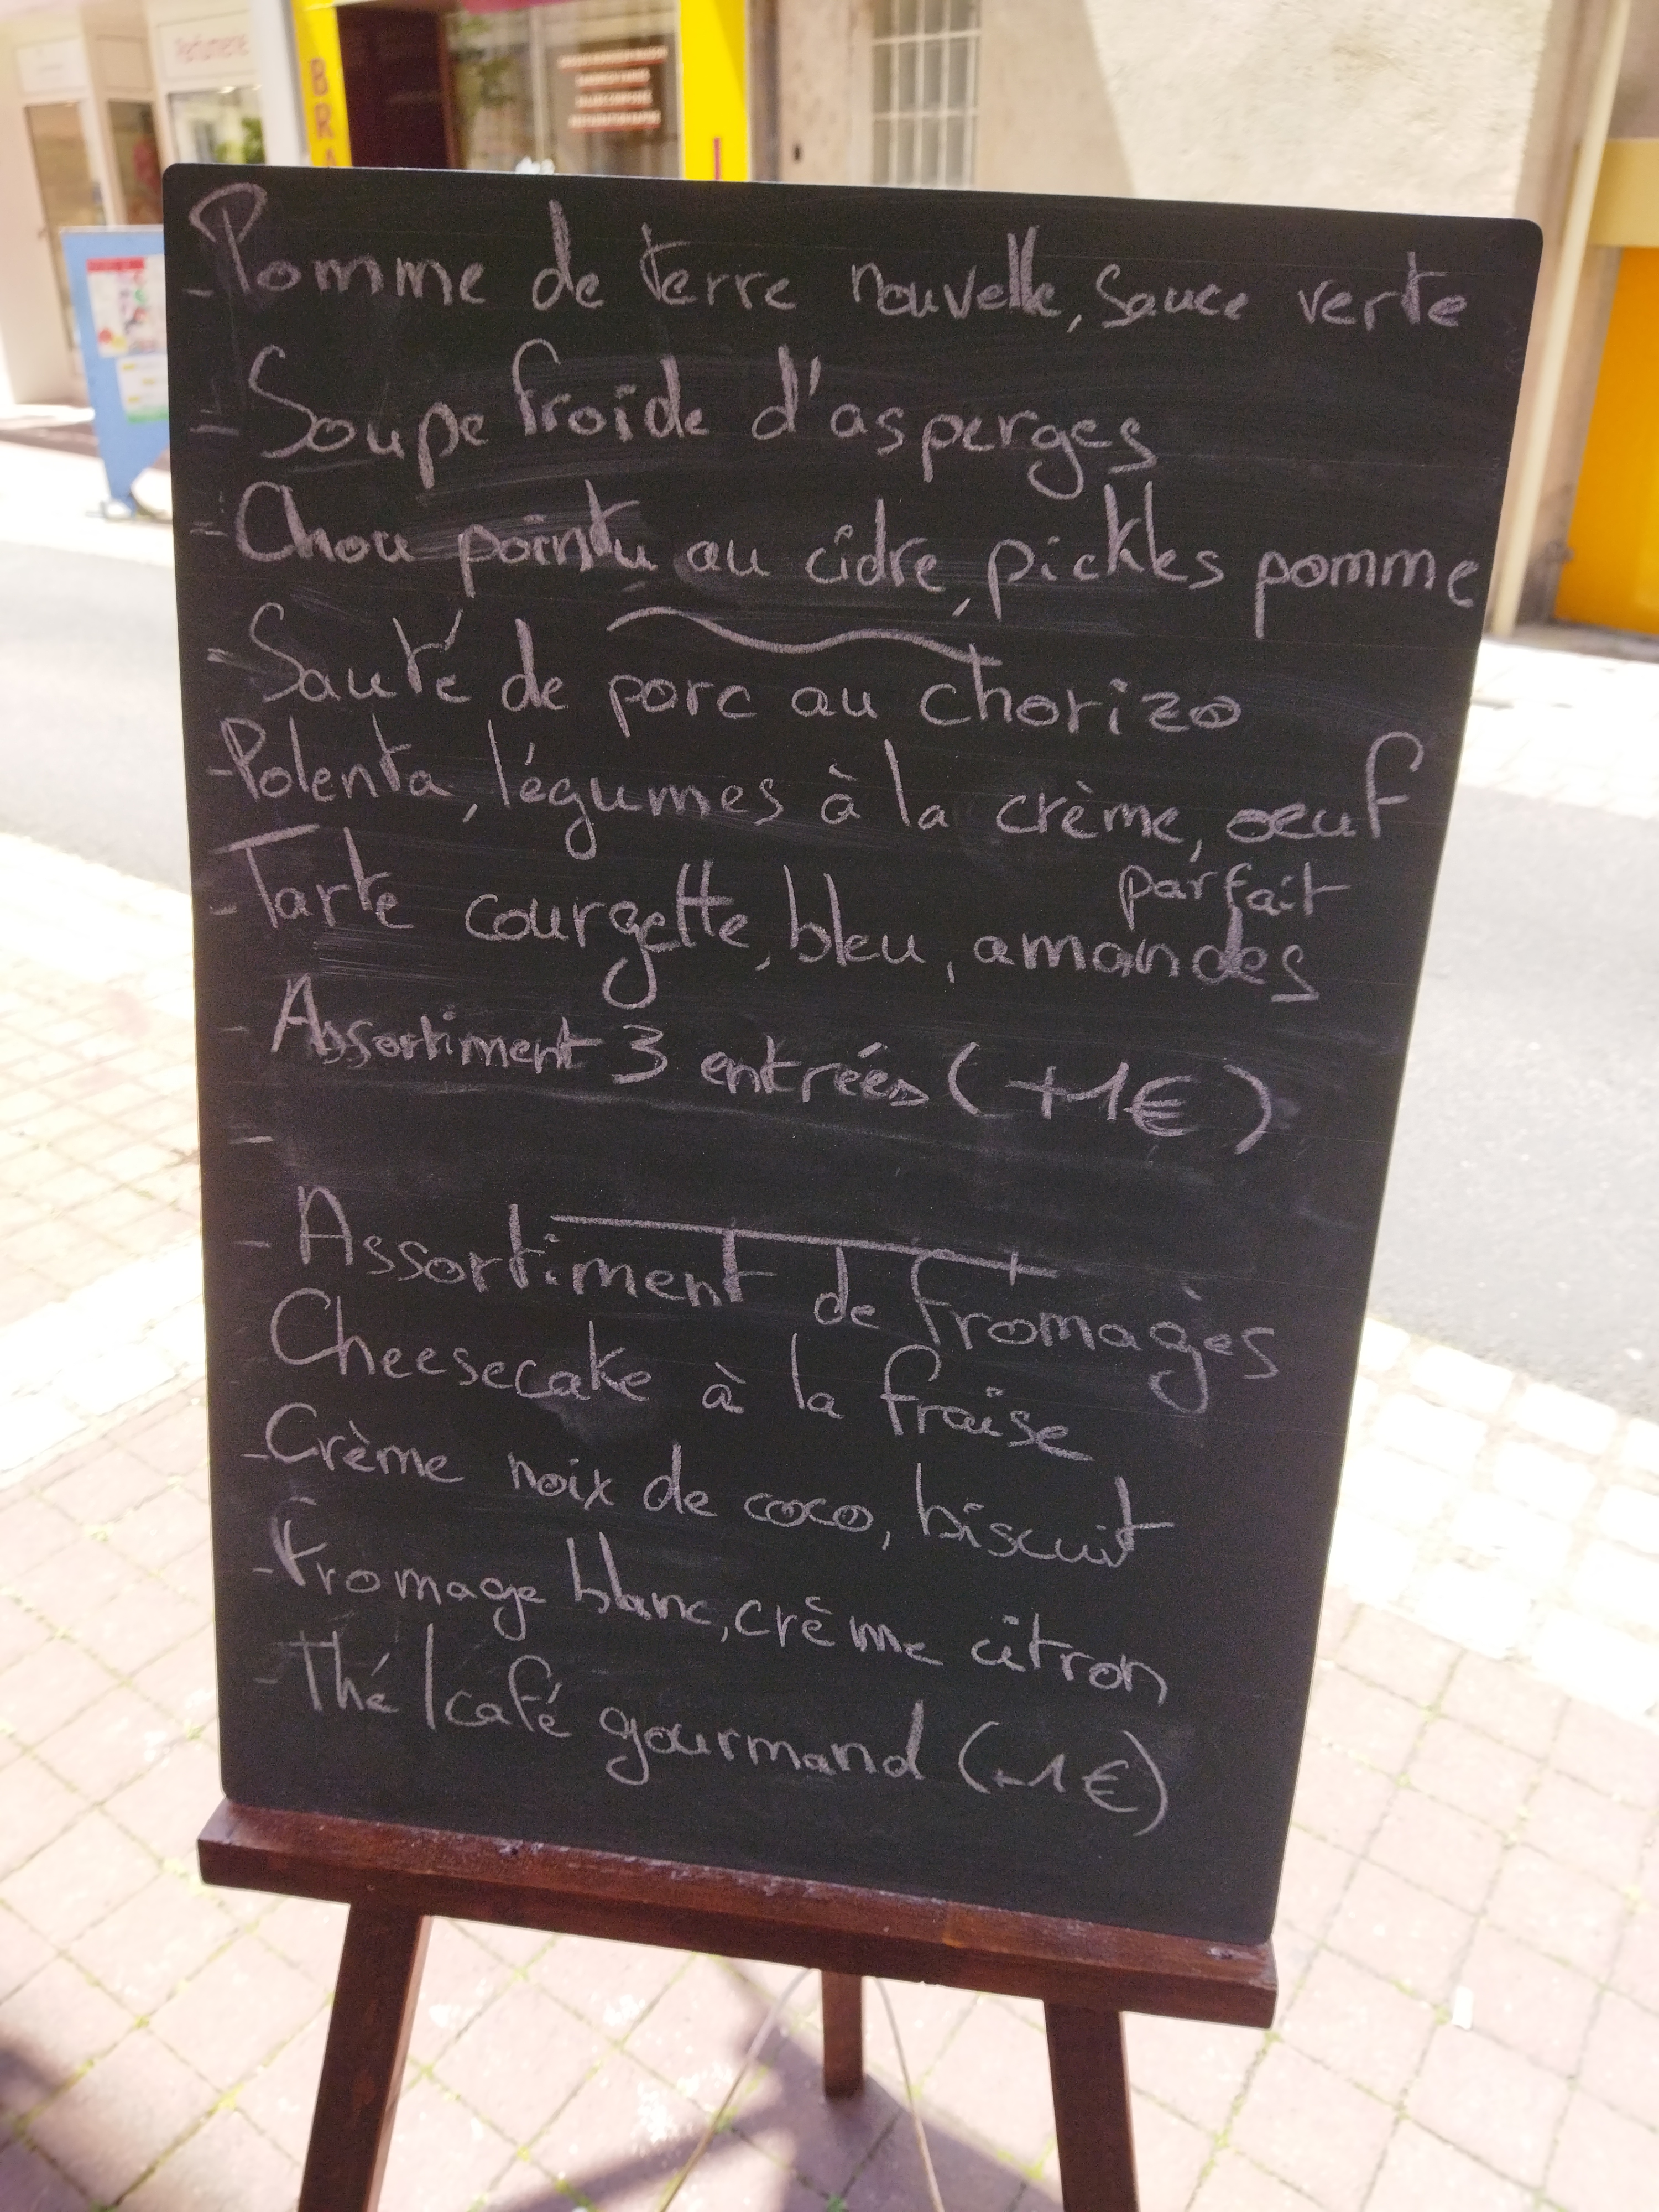 Parfumerie
BRA
- Pomme de terre nouvelle, sauce verte
- Soupe froide d'asperges
- Chou pointu au cidre, pickles pomme
- Sauté de porc au chorizo
- Polenta, légumes à la crème, oeuf
parfait
- Tarte courgette, bleu, amandes
- Assortiment 3 entrées (+1€)
-
- Assortiment de fromages
Cheesecake à la fraise
- Crème noix de coco, biscuit
- Fromage blanc, crème citron
- Thé/café gourmand (+1€)